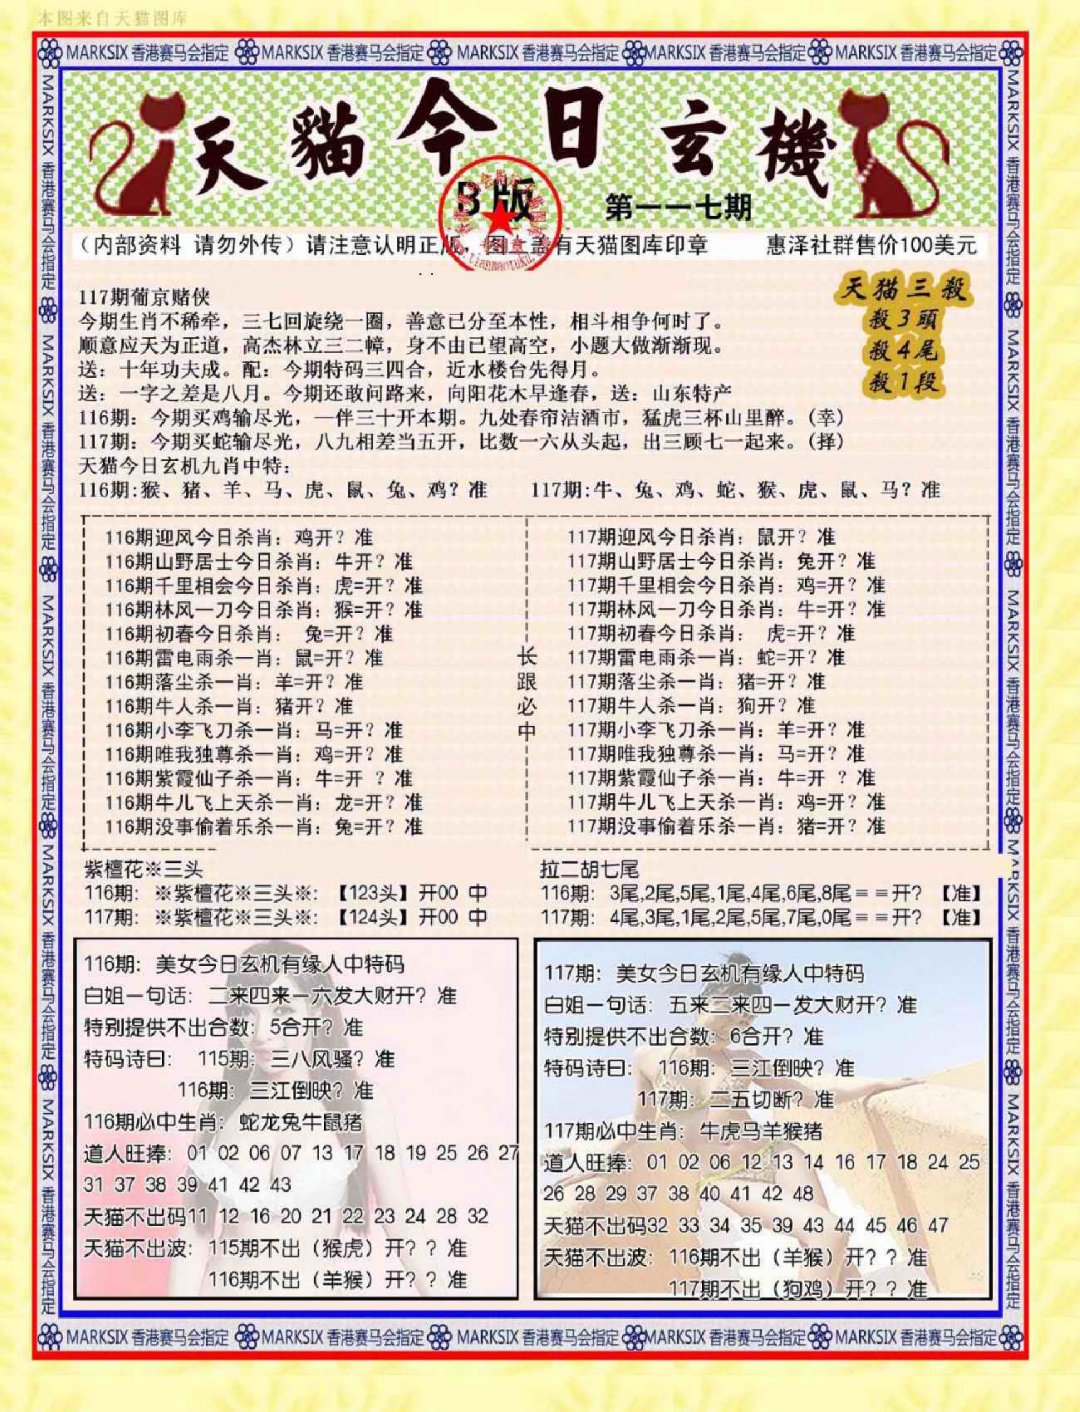 本图来自天猫图库
MARKSIX 香港赛马会指定 MARKSIX 香港赛马会指定 MARKSIX 香港赛马会指定 MARKSIX 香港赛马会指定 MARKSIX 香港赛马会指定
天貓今日玄機
B版
第一一七期
(内部资料 请勿外传)请注意认明正版,图上盖有天猫图库印章 惠泽社群售价100美元
天猫三殺
殺3頭
殺4尾
殺1段
117期葡京赌侠
今期生肖不稀牵,三七回旋绕一圈,善意已分至本性,相斗相争何时了。
顺意应天为正道,高杰林立三二幛,身不由已望高空,小题大做渐渐现。
送:十年功夫成。配:今期特码三四合,近水楼台先得月。
送:一字之差是八月。今期还敢问路来,向阳花木早逢春,送:山东特产
116期:今期买鸡输尽光,一伴三十开本期。九处春帘洁酒市,猛虎三杯山里醉。(幸)
117期:今期买蛇输尽光,八九相差当五开,比数一六从头起,出三顾七一起来。(择)
天猫今日玄机九肖中特:
116期:猴、猪、羊、马、虎、鼠、兔、鸡?准 117期:牛、兔、鸡、蛇、猴、虎、鼠、马?准
116期迎风今日杀肖:鸡开?准
116期山野居士今日杀肖:牛开?准
116期千里相会今日杀肖:虎=开?准
116期林风一刀今日杀肖:猴=开?准
116期初春今日杀肖: 兔=开?准
116期雷电雨杀一肖:鼠=开?准
116期落尘杀一肖:羊=开?准
116期牛人杀一肖:猪开?准
116期小李飞刀杀一肖:马=开?准
116期唯我独尊杀一肖:鸡=开?准
116期紫霞仙子杀一肖:牛=开 ?准
116期牛儿飞上天杀一肖:龙=开?准
116期没事偷着乐杀一肖:兔=开?准
长跟必中
117期迎风今日杀肖:鼠开?准
117期山野居士今日杀肖:兔开?准
117期千里相会今日杀肖:鸡=开?准
117期林风一刀今日杀肖:牛=开?准
117期初春今日杀肖: 虎=开?准
117期雷电雨杀一肖:蛇=开?准
117期落尘杀一肖:猪=开?准
117期牛人杀一肖:狗开?准
117期小李飞刀杀一肖:羊=开?准
117期唯我独尊杀一肖:马=开?准
117期紫霞仙子杀一肖:牛=开 ?准
117期牛儿飞上天杀一肖:鸡=开?准
117期没事偷着乐杀一肖:猪=开?准
紫檀花※三头
116期: ※紫檀花※三头※:【123头】开00 中
117期: ※紫檀花※三头※:【124头】开00 中
拉二胡七尾
116期: 3尾,2尾,5尾,1尾,4尾,6尾,8尾==开? 【准】
117期: 4尾,3尾,1尾,2尾,5尾,7尾,0尾==开? 【准】
116期:美女今日玄机有缘人中特码
白姐一句话:二来四来一六发大财开?准
特别提供不出合数:5合开?准
特码诗曰: 115期:三八风骚?准
116期:三江倒映?准
116期必中生肖:蛇龙兔牛鼠猪
道人旺捧:01 02 06 07 13 17 18 19 25 26 27
31 37 38 39 41 42 43
天猫不出码11 12 16 20 21 22 23 24 28 32
天猫不出波:115期不出(猴虎)开??准
116期不出(羊猴)开??准
117期:美女今日玄机有缘人中特码
白姐一句话:五来二来四一发大财开?准
特别提供不出合数:6合开?准
特码诗曰: 116期:三江倒映?准
117期:二五切断?准
117期必中生肖:牛虎马羊猴猪
道人旺捧:01 02 06 12 13 14 16 17 18 24 25
26 28 29 37 38 40 41 42 48
天猫不出码32 33 34 35 39 43 44 45 46 47
天猫不出波:116期不出(羊猴)开??准
117期不出(狗鸡)开??准
MARKSIX 香港赛马会指定 MARKSIX 香港赛马会指定 MARKSIX 香港赛马会指定 MARKSIX 香港赛马会指定 MARKSIX 香港赛马会指定